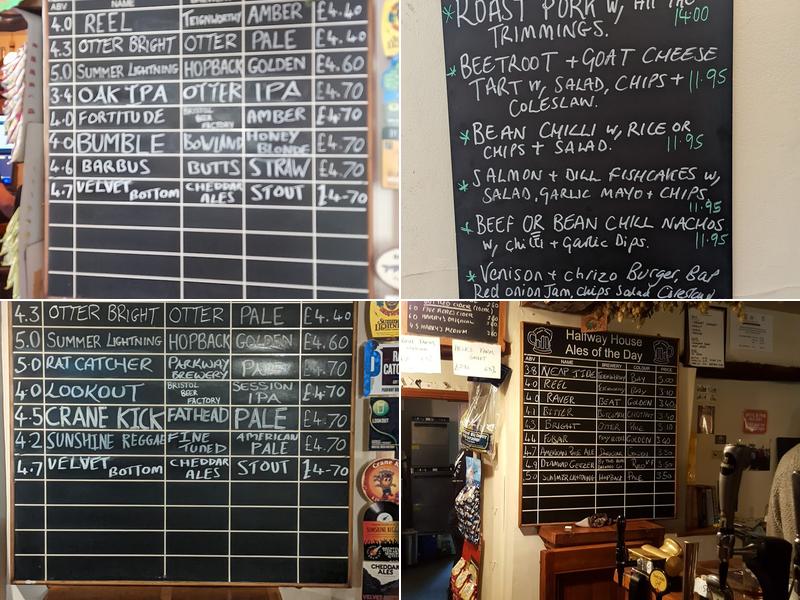 ABV
4.0 REEL TEIGNWORTHY AMBER £4.40
4.3 OTTER BRIGHT OTTER PALE £4.40
5.0 SUMMER LIGHTNING HOPBACK GOLDEN £4.60
3.4 OAK IPA OTTER IPA £4.70
4.0 FORTITUDE BRISTOL BEER FACTORY AMBER £4.70
4.0 BUMBLE BOWLAND HONEY BLONDE £4.70
4.6 BARBUS BUTTS STRAW £4.70
4.7 VELVET BOTTOM CHEDDAR ALES STOUT £4-70
* ROAST PORK w, All THE 14.00
TRIMMINGS.
* BEETROOT + GOAT CHEESE
TART w, SALAD, CHIPS + 11.95
COLESLAW.
* BEAN CHILLI w, RICE OR
CHIPS + SALAD. 11.95
* SALMON + DILL FISHCAKES w,
SALAD, GARLIC MAYO + CHIPS,
11.95
* BEEF OR BEAN CHILL NACHOS
w, chilli + Garlic Dips. 11.95
* Venison + chrizo Burger, Bap
Red onion Jam, chips Salad Coleslaw
4.3 OTTER BRIGHT OTTER PALE £4.40
5.0 SUMMER LIGHTNING HOPBACK GOLDEN £4.60
5.0 RAT CATCHER PARKWAY BREWERY PALE £4.70
4.0 LOOKOUT BRISTOL BEER FACTORY SESSION IPA £4.70
4.5 CRANE KICK FATHEAD PALE £4.70
4.2 SUNSHINE REGGAE FINE TUNED AMERICAN PALE £4.70
4.7 VELVET BOTTOM CHEDDAR ALES STOUT £4-70
LOOKOUT
CHEDDAR ALES
Halfway House
Ales of the Day
ABV NAME BREWERY COLOUR PRICE
3.8 NEAP TIDE
4.0 REEL
4.0 RAVER BEAT GOLDEN 3.40
4.1 BITTER
4.3 BRIGHT OTTER PALE
4.4 FUBAR GOLDEN
4.7 AMERICAN PALE ALE
4.9
5.0 SUMMER LIGHTNING HOPBACK PALE 3.50